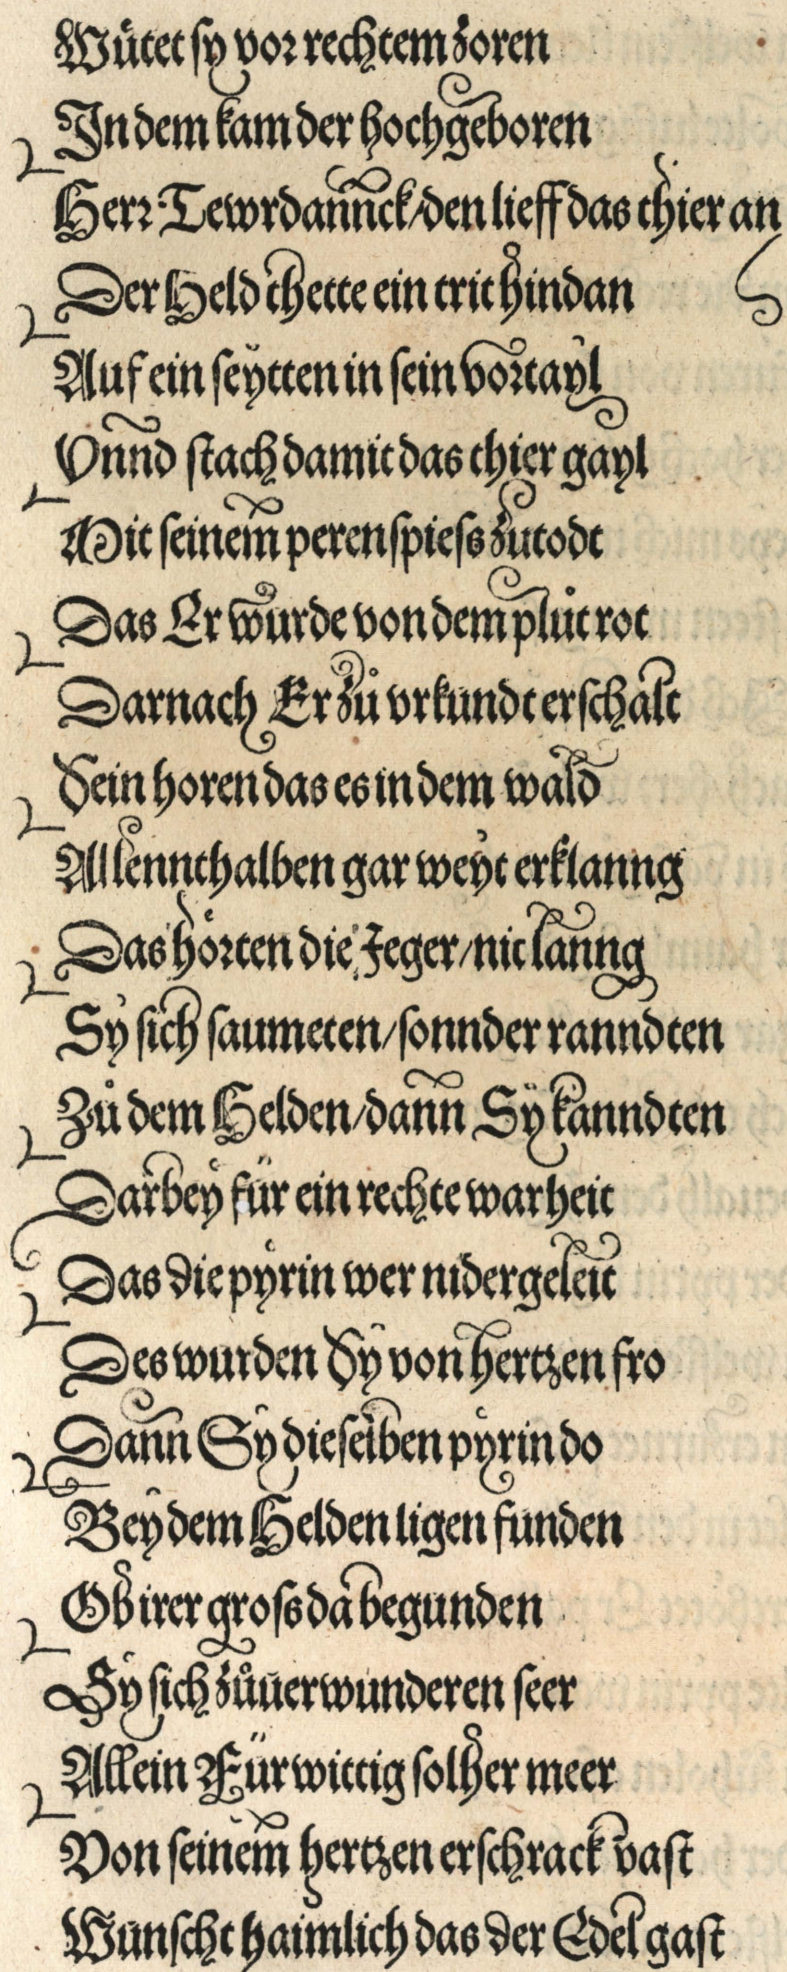 Wůtet sy vor rechtem zoren
In dem kam der hochgeboren
Herr Tewrdannck/den lieff das thier an
Der Held thette ein trit hindan
Auf ein seÿtten in sein vortaÿl
Vnnd stach damit das thier gayl
Mit seinem perenspiess zutodt
Das Er wurde von dem plůt rot
Darnach Er zů vrkundt erschalt
Sein horen das es in dem wald
Allennthalben gar weÿt erklanng
Das hörten die Jeger/nit lanng
Sÿ sich saumeten/sonnder ranndten
Zů dem Helden/dann Sÿ kanndten
Darbeÿ für ein rechte warheit
Das die pÿrin wer nidergeleit
Des wurden Sÿ von hertzen fro
Dann Sÿ dieselben pÿrin do
Beÿ dem Helden ligen funden
Ob irer gross da begunden
Sÿ sich zůuerwunderen seer
Allein Fürwittig solher meer
Von seinem hertzen erschrack vast
Wunscht haimlich das der Edel gast